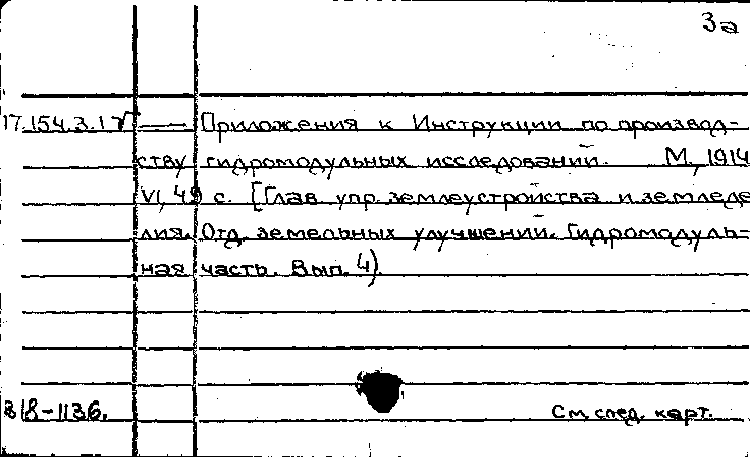 3а
17.154.3.1 V — Приложения к Инструкции по производ-
ству гидромодульных исследований. М., 1914
VI, 49 с. [Глав. упр. землеустройства и земледе
лия. Отд. земельных улучшений. Гидромодуль=
ная часть. Вып. 4).
318-1136.
См. след. карт.